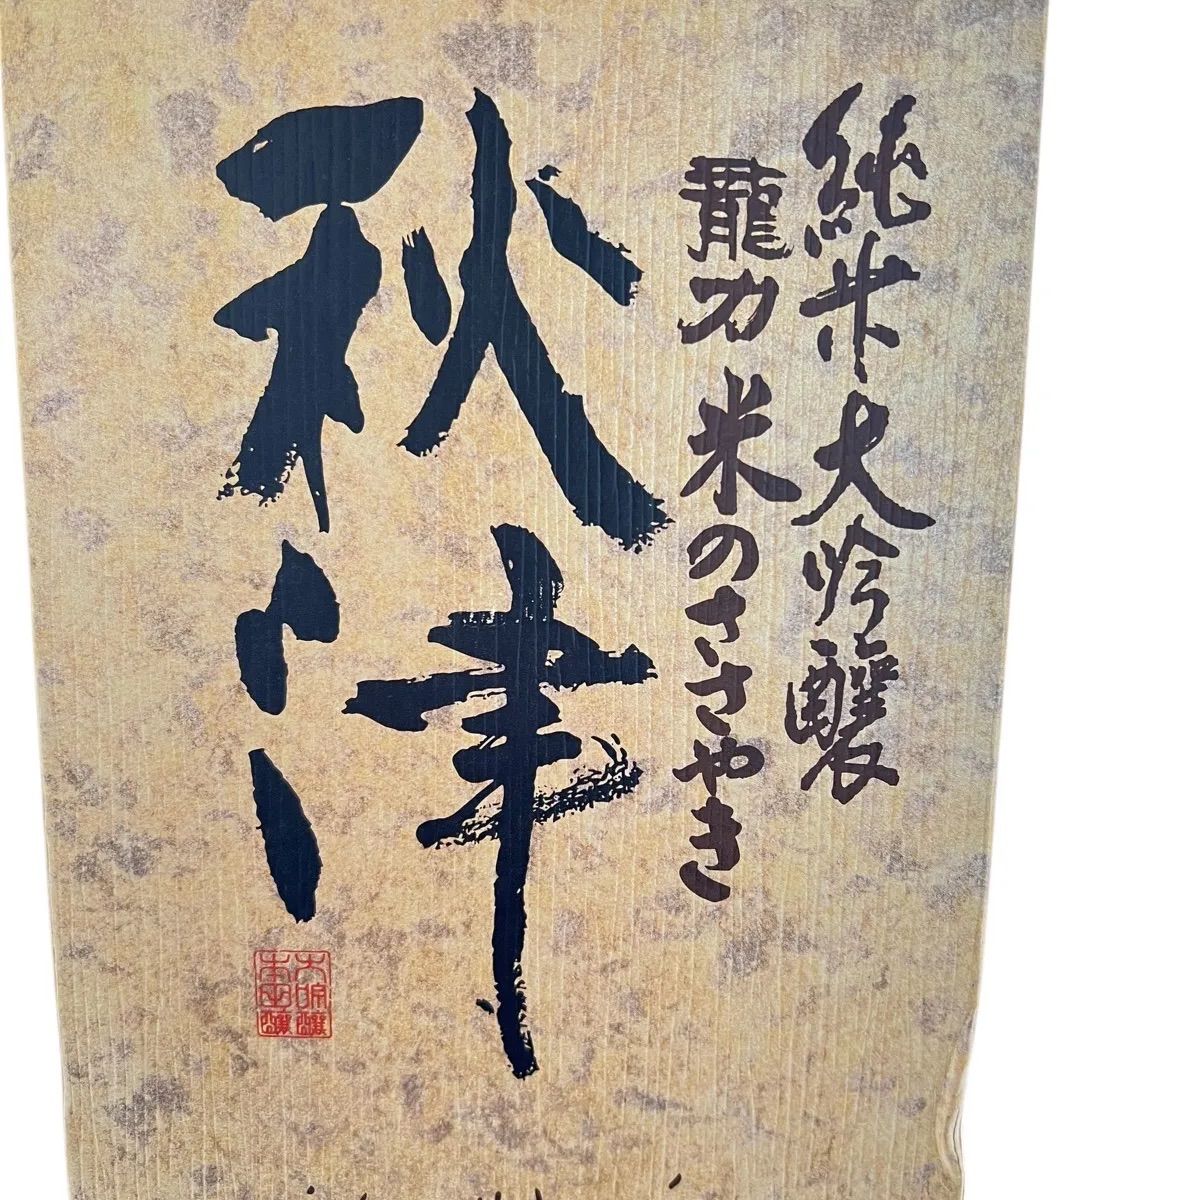 純米大吟醸
龍力 米のささやき
秋津